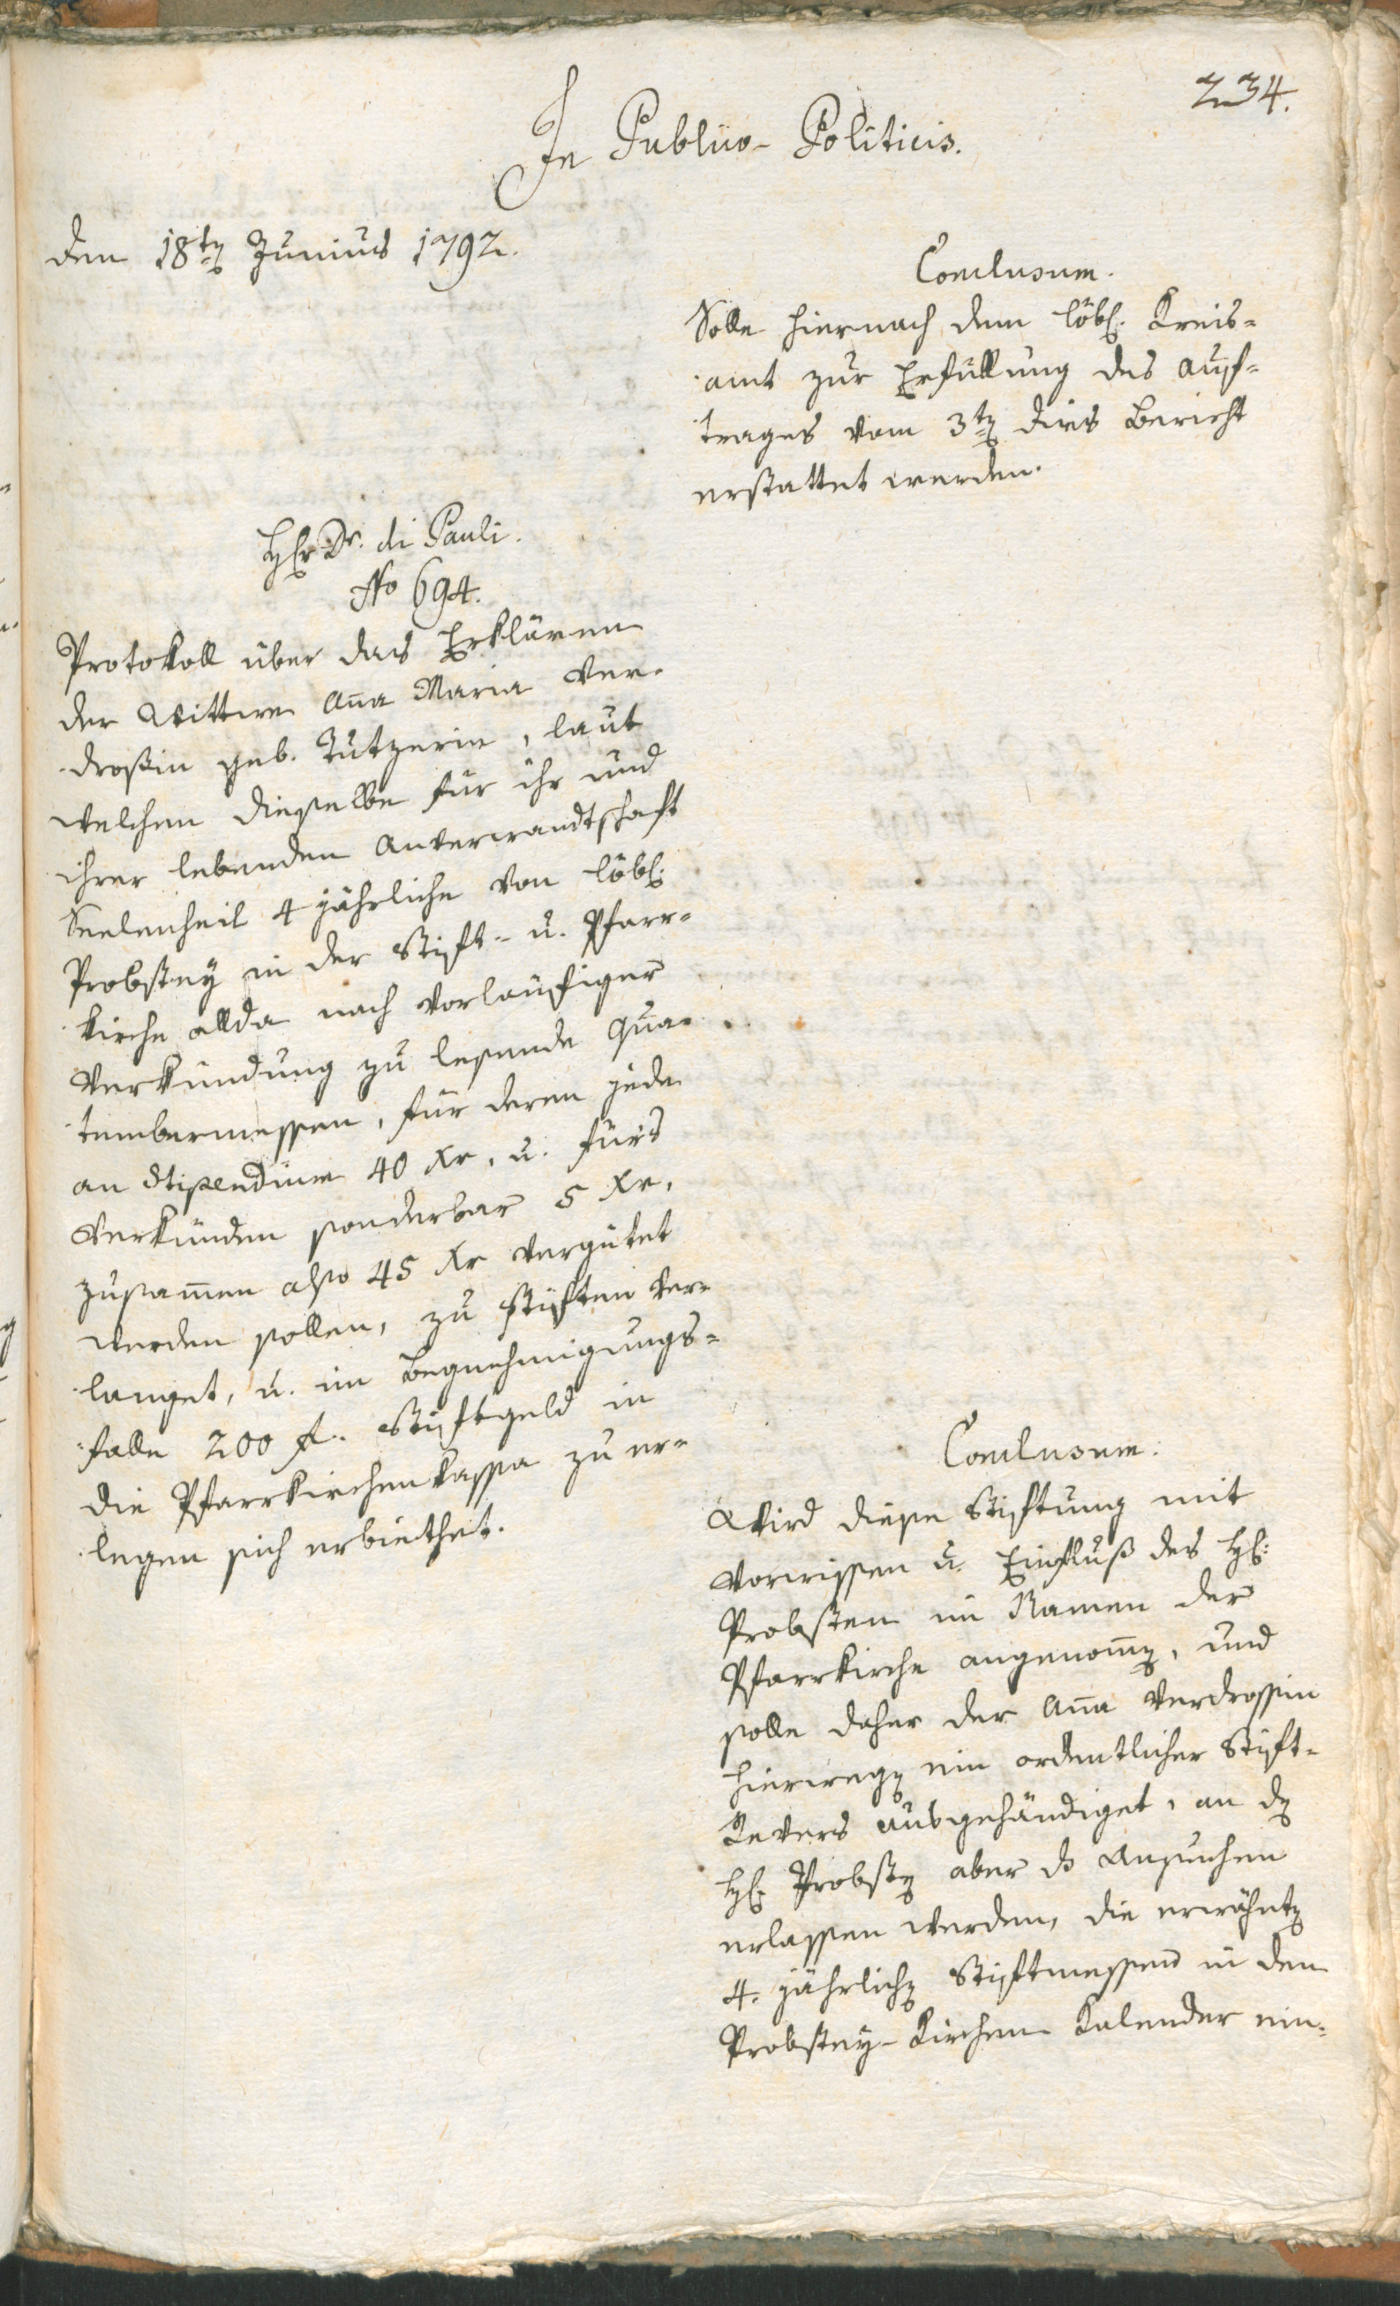 234.
In Publico-Politicis.
den 18ten Junius 1792.
Conclusum.
Solle hiernach dem löbl. Kreis-
amt zur Erfüllung des Auf-
trages vom 3ten dies Bericht
erstattet werden.
Hr Dr. di Pauli.
No 694.
Protokoll über das Erklären
der Wittwe Aña Maria Ver-
droßin geb. Tutzerin, laut
welchem dieselbe für ihr und
ihrer lebenden Anverwandtschaft
Seelenheil 4 jährliche von löbl.
Probstey in der Stift- u. Pfarr-
kirche allda nach vorläufiger
Verkündung zu lesende Qua-
tembermessen, für deren jede
an Stipendium 40 Xr, u. fürs
Verkünden sonderbar 5 Xr,
zusam̃en also 45 Xr vergütet
werden sollen, zu stiften ver-
langet, u. im Begnehmigungs-
falle 200 f. Stiftgeld in
die Pfarrkirchenkassa zu er-
legen sich erbiethet.
Conclusum.
Wird diese Stiftung mit
Vorwissen u. Einfluß des H:
Probsten im Namen der
Pfarrkirche angenom̃en, und
solle daher der Aña Verdrossin
hierwegen ein ordentlicher Stift-
Revers ausgehändiget, an den
H. Probsten aber das Ansuchen
erlassen werden, die erwähnten
4. jährlichen Stiftmessen in den
Probstey-Kirchen Kalender ein-